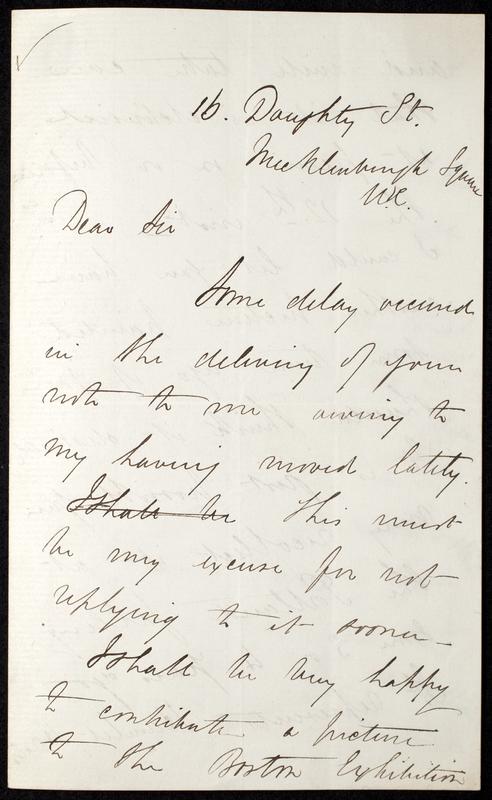 16. Doughty St.
Mecklenburgh Square
W.C.
Dear Sir
Some delay occured
in the delivery of your
note to me owing to
my having moved lately.
I shall be this must
be my excuse for not
replying to it sooner—
I shall be very happy
to contribute a picture
to the Boston Exhibition